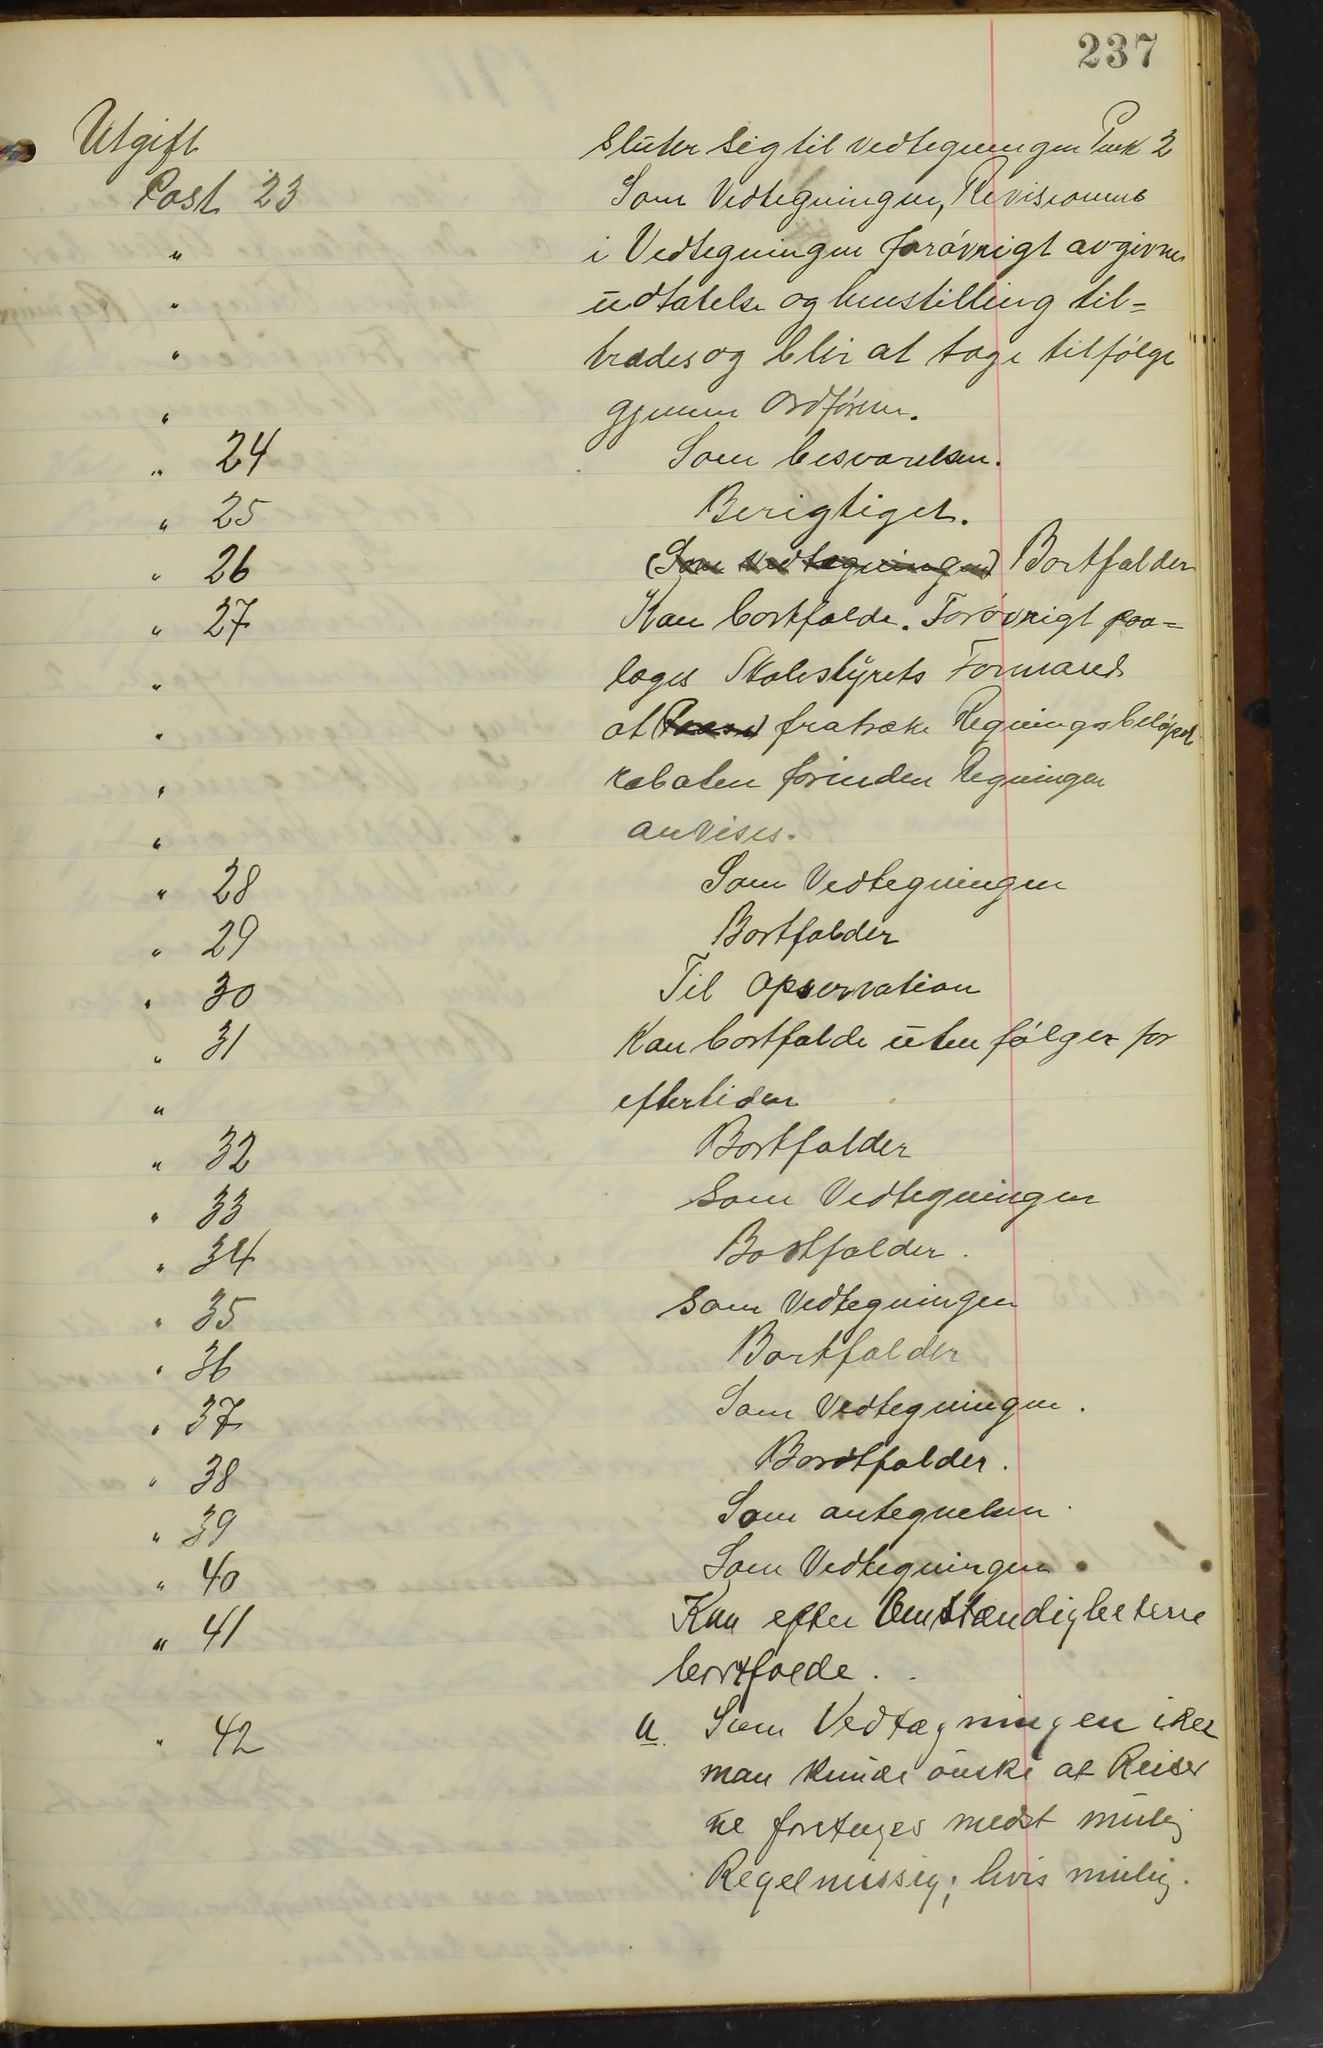 237
Utgift sluter sig til vedtegningen Punk 2
Post 23 Som Vedtegningen, Revisionens
" i Vedtegningen forøvrigt avgivne
" udtalelse og henstilling til-
" trædes og blir at tage tilfølge
" gjennem Ordføren.
" 24 Som besvarelsen.
" 25 Berigtiget.
" 26 (Som Vedtegningen) Bortfalder
" 27 Kan bortfalde. Forøvrigt paa-
" lægges Skolestyrets Formand
" at fratrække Regningsbeløpet
" rabaten forinden Regningen
" anvises.
" 28 Som Vedtegningen
" 29 Bortfalder
" 30 Til Opservation
" 31 Kan bortfalde uten følger for
" eftertiden
" 32 Bortfalder
" 33 Som Vedtegningen
" 34 Bortfalder.
" 35 Som Vedtegningen
" 36 Bortfalder
" 37 Som Vedtegningen.
" 38 Bordtfalder.
" 39 Som antegnelsen.
" 40 Som Vedtegningen.
" 41 Kan efter Omstændigheterne
bortfalde.
" 42 a. Som Vedtægningen
man kunde ønske at Reiser
ne foretages mest mulig
Regelmissig; hvis mulig.